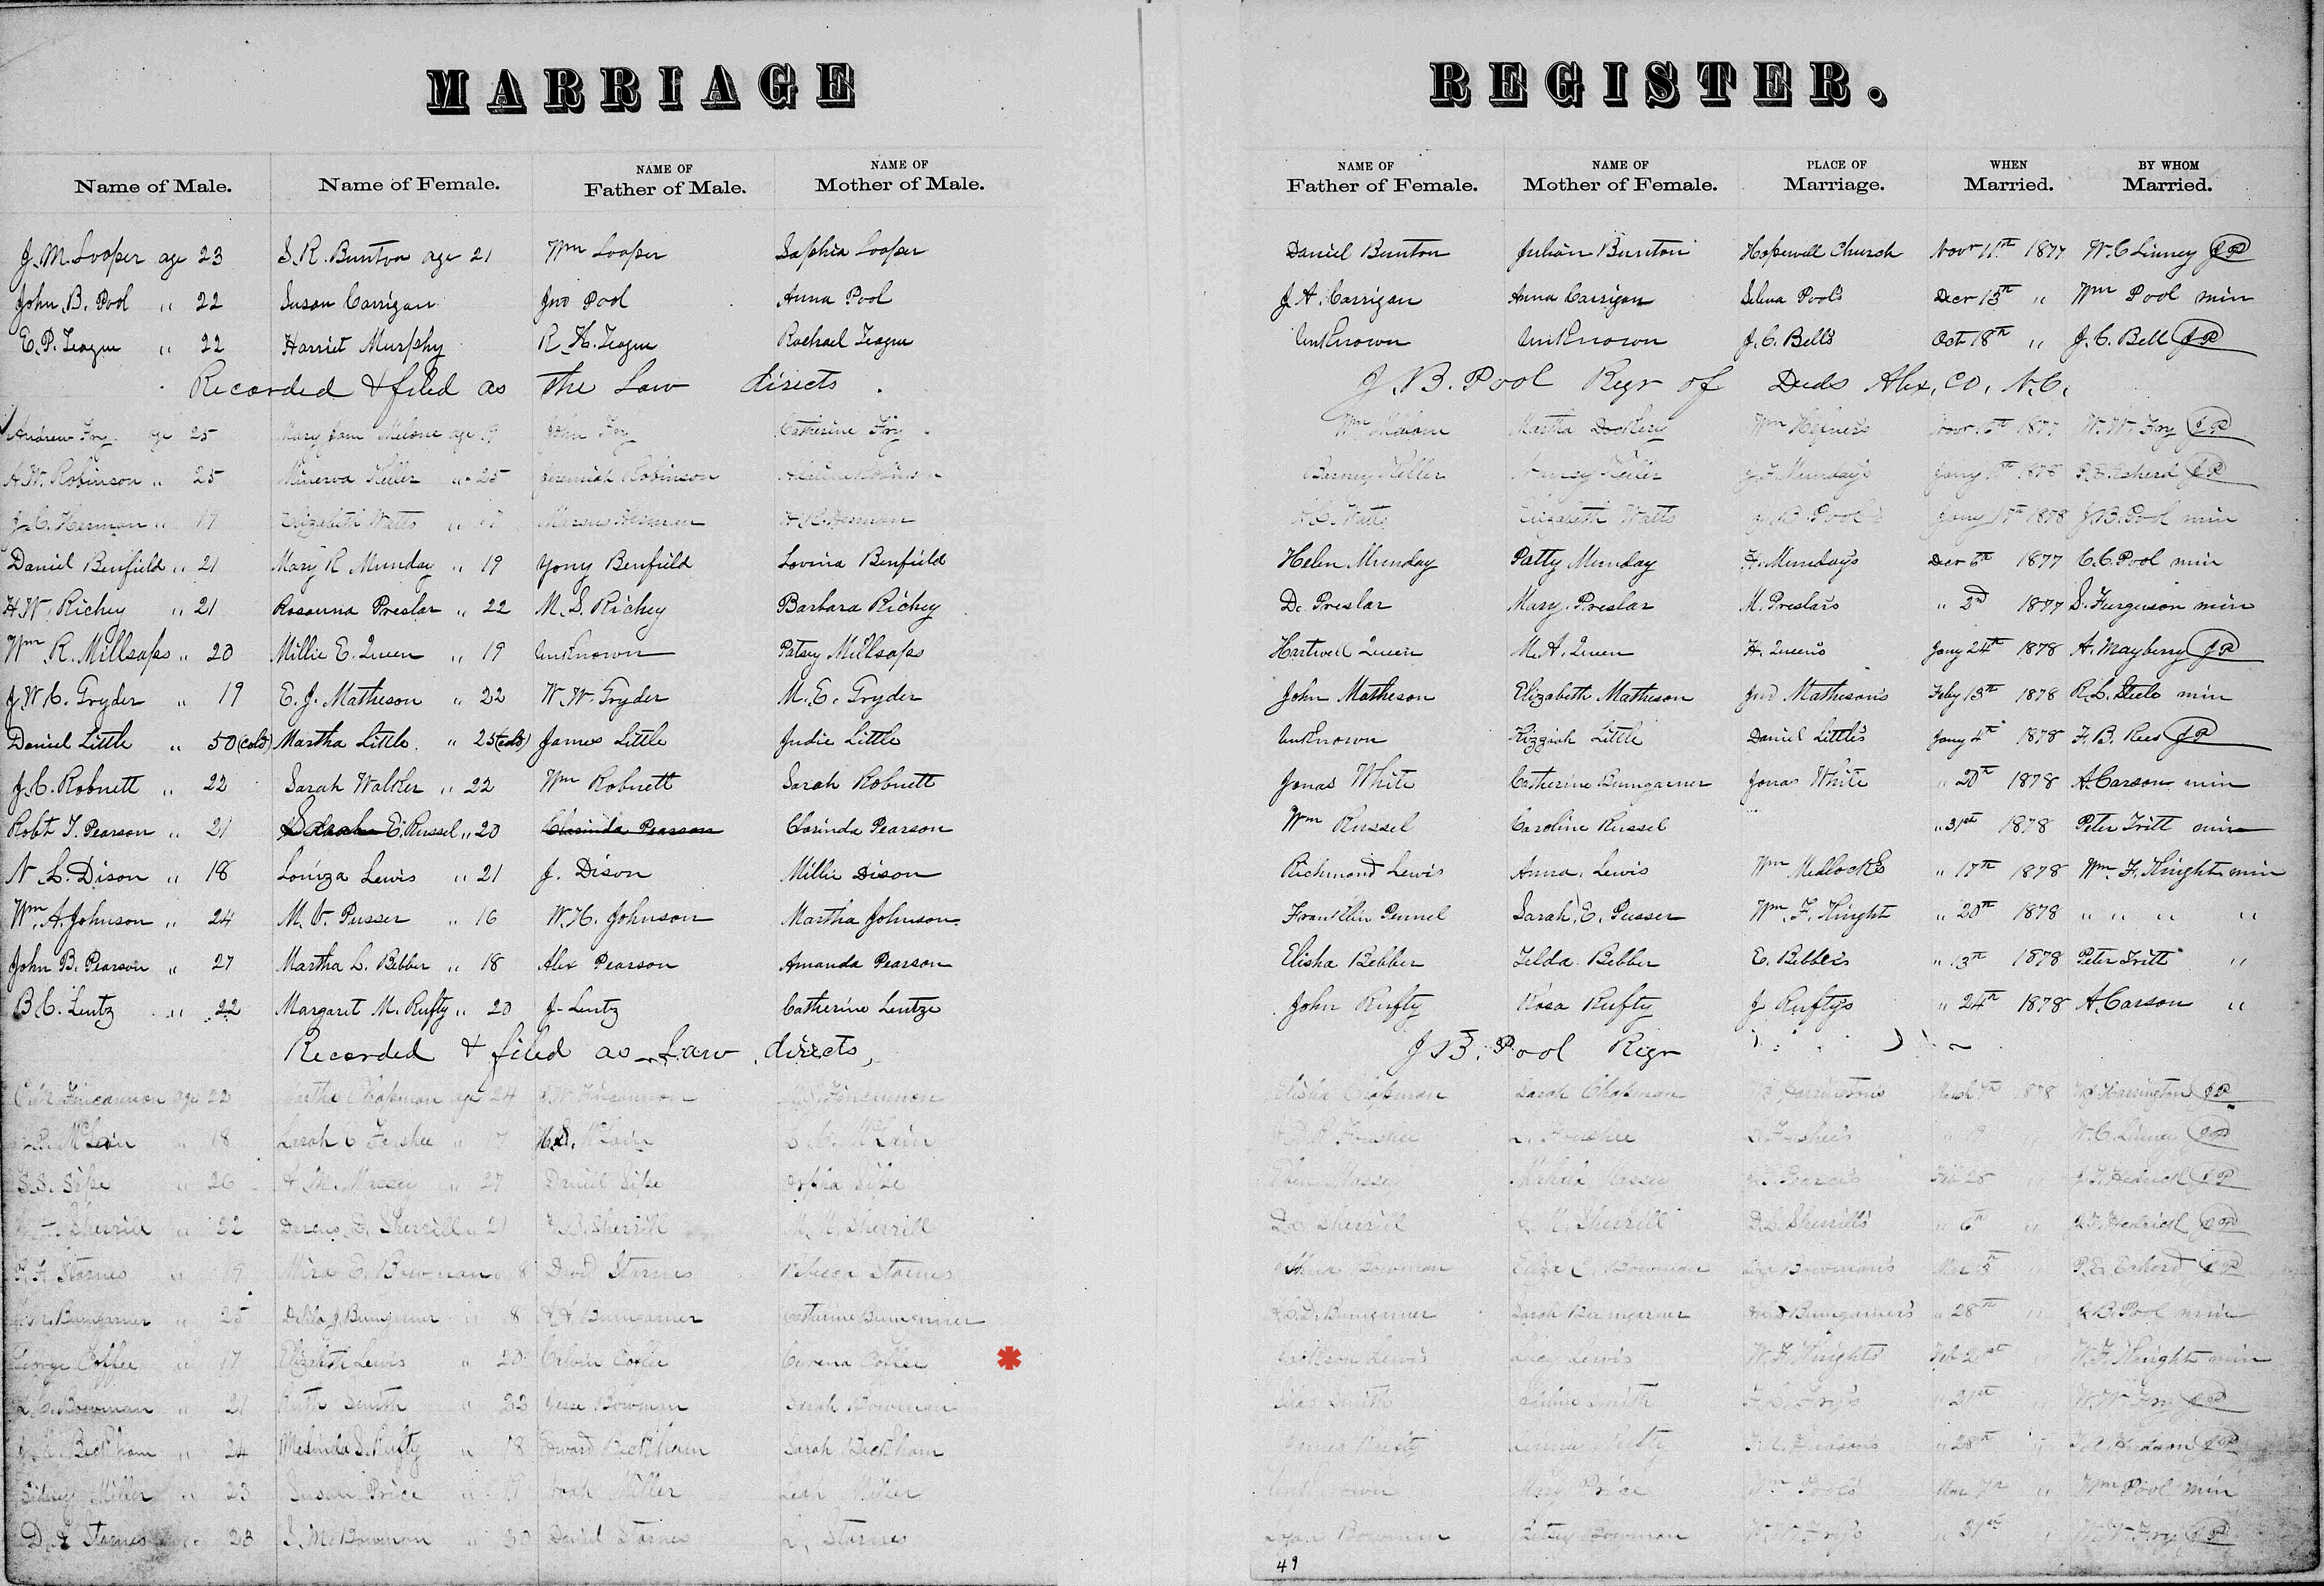 MARRIAGE REGISTER.
Name of Male. Name of Female. NAME OF Father of Male. NAME OF Mother of Male. NAME OF Father of Female. NAME OF Mother of Female. PLACE OF Marriage. WHEN Married. BY WHOM Married.
J. M. Looper age 23 S. R. Bunton age 21 Wm Looper Sophia Looper Daniel Bunton Julian Bunton Hopewell Church Novr 11th 1877 W. C Linney JP
John B. Pool " 22 Susan Carrigan Jno Pool Anna Pool J A. Carrigan Anna Carrigan Selena Pool's Decr 13th " Wm Pool min
E. P. Teague " 22 Harriet Murphy R. H. Teague Rachael Teague UnKnown UnKnown J. C. Bell's Oct 18th " J. C. Bell JP
Recorded & filed as the Law directs. J. B. Pool Regr of Deeds Alex, Co, N. C.
Andrew Fry age 25 Mary Jane age 19 John Fry Catherine Fry Wm Martha Dockery Wm Hefner's Novr 1877 W. W. Fry JP
A. W. Robinson " 25 Minerva Keller " 25 Jeremiah Robinson Barney Keller Keller J. F. Munday's Jany 1878 JP
J. C. Herman " 17 Elizabeth Watts " Marcus Herman Herman Watts Elizabeth Watts J. B. Pool's Jany 17th 1878 J. B. Pool min
Daniel Benfield " 21 Mary R Munday " 19 Yony Benfield Lovina Benfield Helen Munday Patty Munday H. Munday's Decr 6th 1877 C. C. Pool min
H. W. Richey " 21 Rosanna Preslar " 22 M. S. Richey Barbara Richey D. Preslar Mary. Preslar M. Preslar's " 2nd 1877 S. Furguson min
Wm R. Millsaps " 20 Millie E. Queen " 19 UnKnown Patsy Millsaps Hartwell Queen M. A. Queen H. Queen's Jany 24th 1878 A. Mayberry JP
J. W. C. Gryder " 19 E. J. Matheson " 22 W. W. Gryder M. E. Gryder John Matheson Elizabeth Matheson Jno Matheson's Feby 13th 1878 R. L. Steele min
Daniel Little " 50 (cold) Martha Little. " 25 (cold) James Little Judie Little UnKnown Kizziah Little Daniel Little's Jany 4th 1878 F. B. Rees JP
J. C. Robnett " 22 Sarah Walker " 22 Wm Robnett Sarah Robnett Jonas White Catherine Bumgarner Jonas White " 20th 1878 A Carson min
Robt T. Pearson " 21 E. Russel " 20 Clarinda Pearson Clarinda Pearson Wm Russel Caroline Russel " 31st 1878 Peter Tritt min
N L. Dison " 18 Louiza Lewis " 21 J. Dison Millie Dison Richmond Lewis Anna. Lewis Wm MedlocKs " 17th 1878 Wm. F. Knight min
Wm. A. Johnson " 24 M. V. Pusser " 16 W. H. Johnson Martha Johnson. Franklin Pennel Sarah, E, Pusser Wm. F. Knight " 20th 1878 " " " "
John B. Pearson " 27 Martha L. Bebber " 18 Alex Pearson Amanda Pearson Elisha Bebber Zelda Bebber E. Bebbers " 13th 1878 Peter Tritt "
B C. Lentz " 22 Margaret M. Rufty " 20 J. Lentz Catherine Lentze John Rufty Rosa Rufty J Rufty's " 24th 1878 A. Carson "
Recorded & filed as Law directs, J B. Pool Regr
Fincannon age 22 Martha Chapman age 24 Fincannon Fincannon Elisha Chapman Sarah Chapman March 7th 1878 Harrington JP
McLain " 18 Sarah E Foushee " 17 McLain McLain Foushee Foushee Foushee's W. C. Linney JP
S. S. Sipe " 26 A. M. Massey " 27 Daniel Sipe Orpha Sipe Feb 28 J. F. Hedrick JP
Sherrill " 22 Dorcus D. Sherrill " 21 Sherrill M. M. Sherrill Sherrill Sherrill D. L. Sherrill's " 6th " J. F. Hedrick JP
R A Starnes " 19 E. Bowman " 18 David Starnes Rebecca Starnes Bowman Eliza C. Bowman Bowman's Mar 5th " JP
Bumgarner " 25 J. Bumgarner " 18 Bumgarner Catherine Bumgarner Bumgarner Sarah Bumgarner Bumgarner's " 28th " J. B. Pool min
George Coffee " 17 Elizabeth Lewis " 20 Calvin Coffee Coffee * Jackson Lewis Lucy Lewis W. F. Knight's Feb 21st " W. F. Knight min
Bowman " 21 Ruth Smith " 22 Jesse Bowman Sarah Bowman Silas Smith Smith Fry's " 21st " W. W. Fry JP
Beckham " 24 Melinda S. Rufty " 18 Edward Beckham Sarah Beckham Rufty Rufty " 28th " JP
Sidney Miller " 23 Susan Price " 19 Noah Miller Leah Miller Unknown Mary Price Wm Pool's Mar 7th " Wm Pool min
D. E Starnes " 23 S. M. Bowman " 30 Daniel Starnes L. Starnes Bowman Betsey Bowman W. W. Fry's " 21st " W. W. Fry JP
49